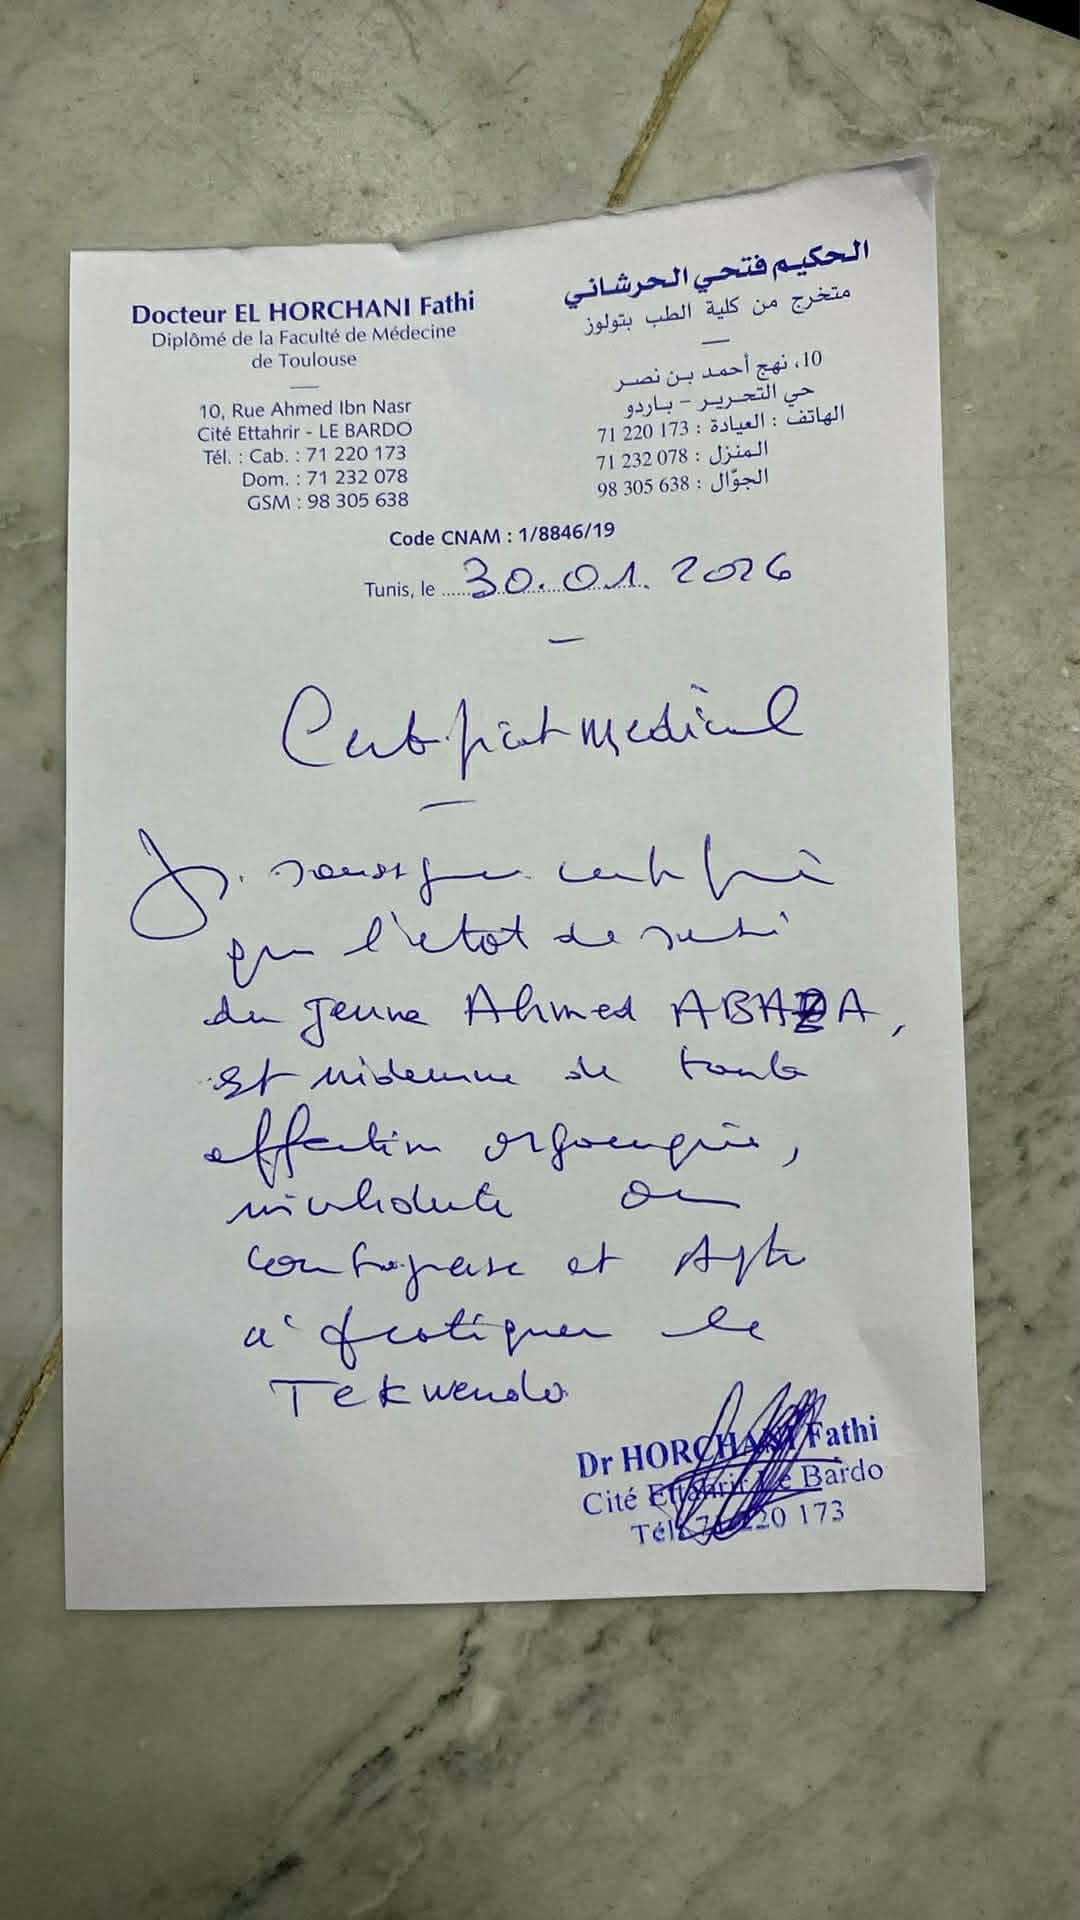 Docteur EL HORCHANI Fathi
Diplômé de la Faculté de Médecine
de Toulouse
10, Rue Ahmed Ibn Nasr
Cité Ettahrir - LE BARDO
Tél. : Cab. : 71 220 173
Dom. : 71 232 078
GSM : 98 305 638
الحكيم فتحي الحرشاني
متخرج من كلية الطب بتولوز
10، نهج أحمد بن نصر
حي التحرير - باردو
الهاتف : العيادة : 173 220 71
المنزل : 078 232 71
الجوّال : 638 305 98
Code CNAM : 1/8846/19
Tunis, le 30.01.2026
Certificat médical
Je soussigné certifie
que l'état de santé
du jeune Ahmed ABAZA,
est indemne de toute
affection organique,
invalidante ou
contagieuse et Apte
à pratiquer le
Tekwendo
Dr HORCHANI Fathi
Cité Ettahrir Le Bardo
Tél: 71 220 173